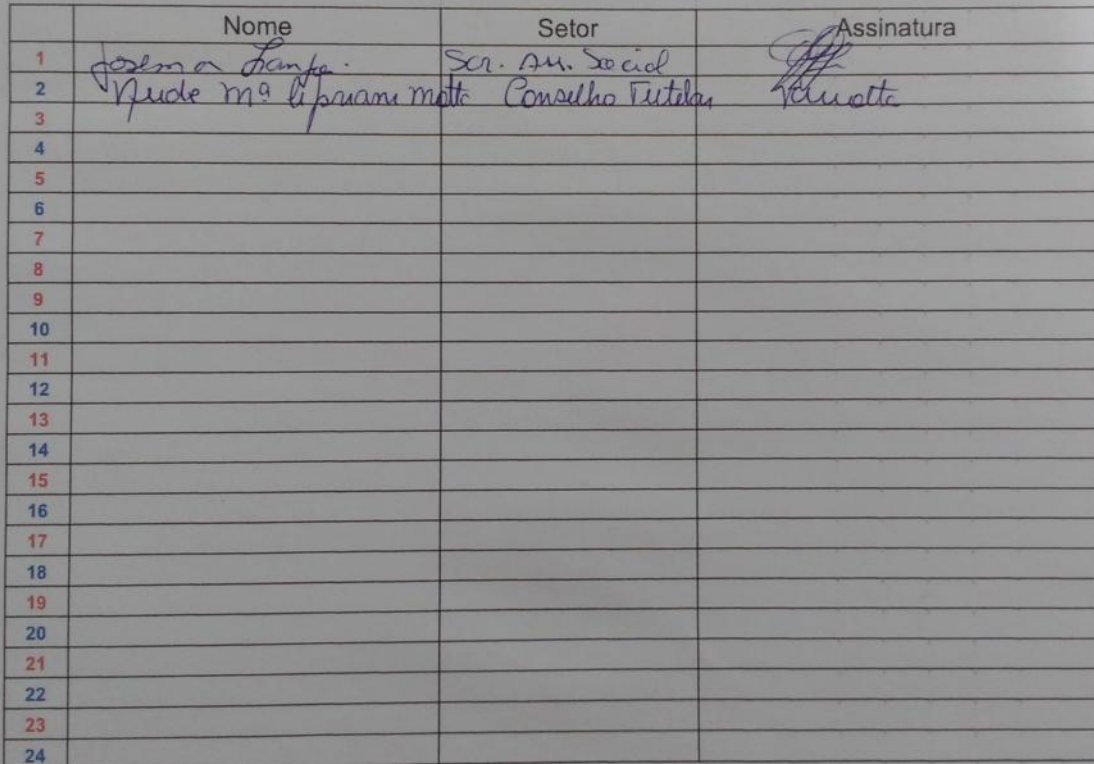 Nome Setor Assinatura
1 Scr. Ass. Social
2 Mª Cipriani Motta Conselho Tutelar
3
4
5
6
7
8
9
10
11
12
13
14
15
16
17
18
19
20
21
22
23
24